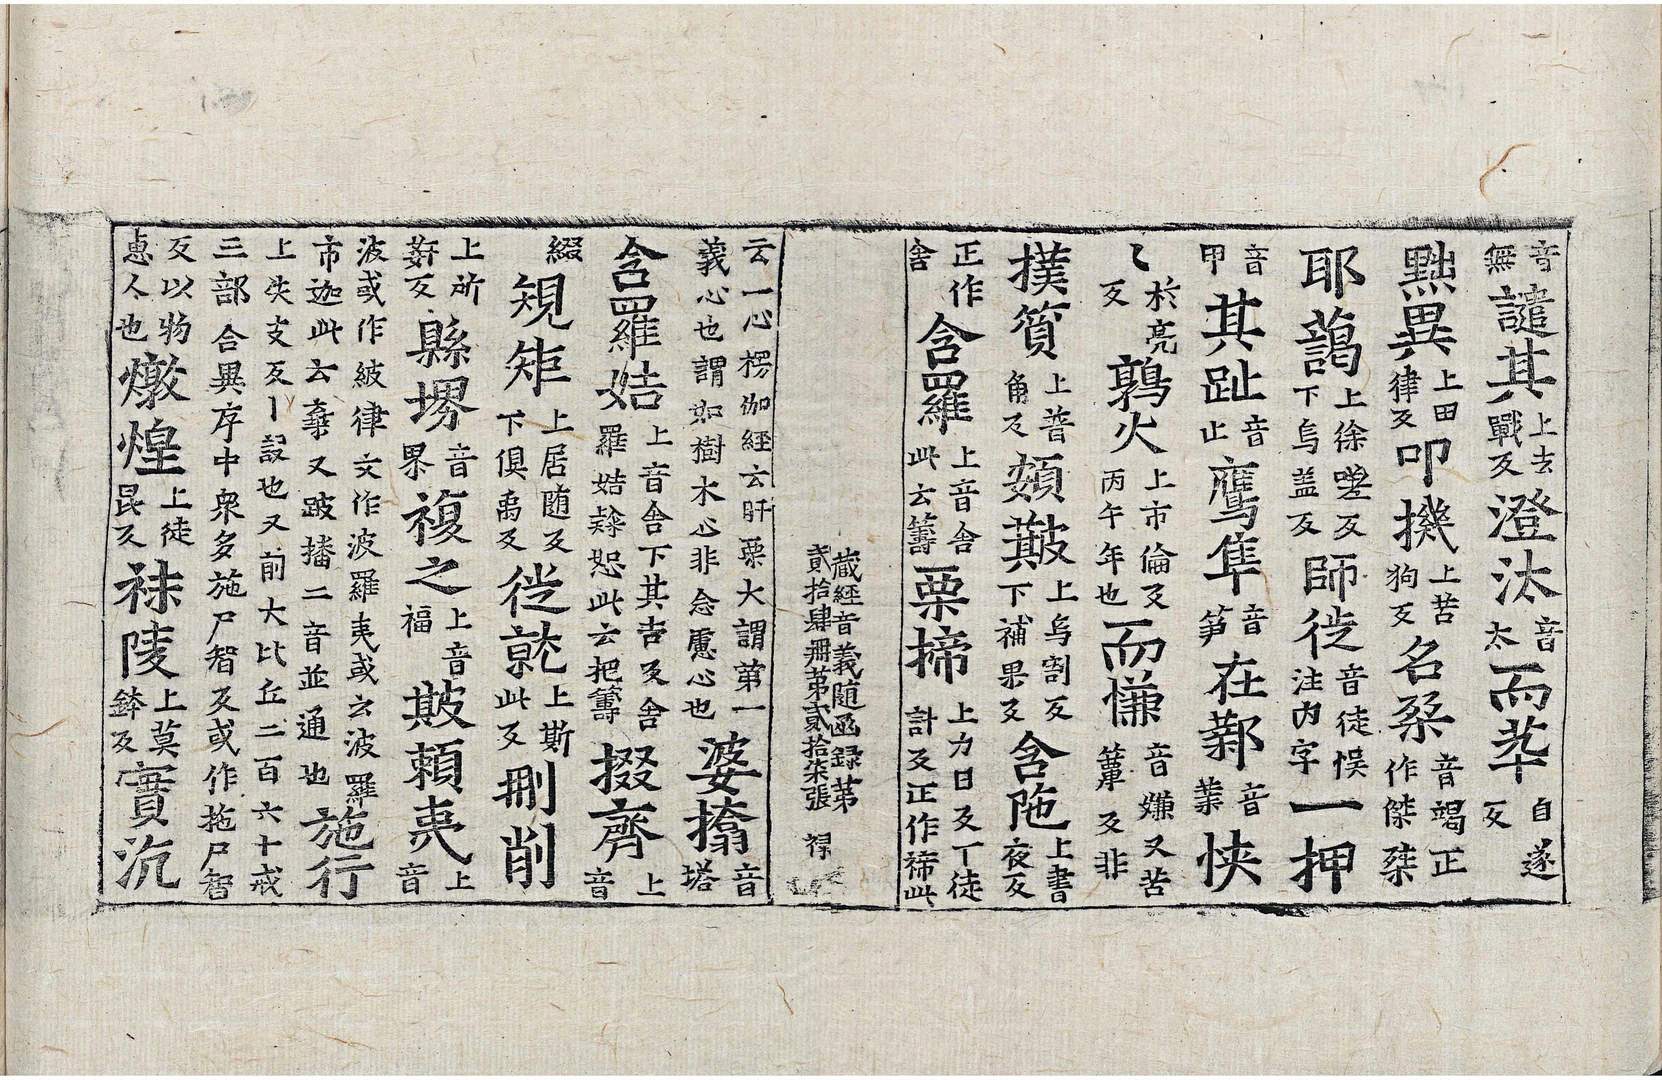 音無譴其上去戰反澄汰音太而萃自遂反
黜異上田律反叩機上苦狗反名桀音竭正作傑桀
耶藹上徐嗟反下烏盖反師徒音徒悞注内字一押
音甲其趾音止鷹隼音笋在鄴音業恔
於亮反鶉火上市倫反丙午年也而慊音嫌又苦簟反非
撲質上普角反頞㩼上烏割反下補果反含陁上書夜反
正作舍含羅上音舍此云籌栗㨹上力日反丁徒計反正作𥚩此
藏經音義随函録第貳拾肆册第貳拾柒張 禄
云一心楞伽經云肝栗大謂第一義心也謂如樹木心非念慮心也婆搚音塔
含羅姞上音舍下其吉反舍羅姞𣫍恕此云把籌掇齊上音
綴䂓矩上居随反下俱禹反徙就上斯此反刪削
上所姧反縣堺音界複之上音福㩼賴夷上音
波或作紴律文作波羅夷或云波羅市迦此云棄又跛播二音並通也施行
上失支反丨設也又前大比丘二百六十戒三部合異序中衆多施尸智反或作拖尸智
反以物惠人也燉煌上徒昆反袜陵上莫鉢反實沉